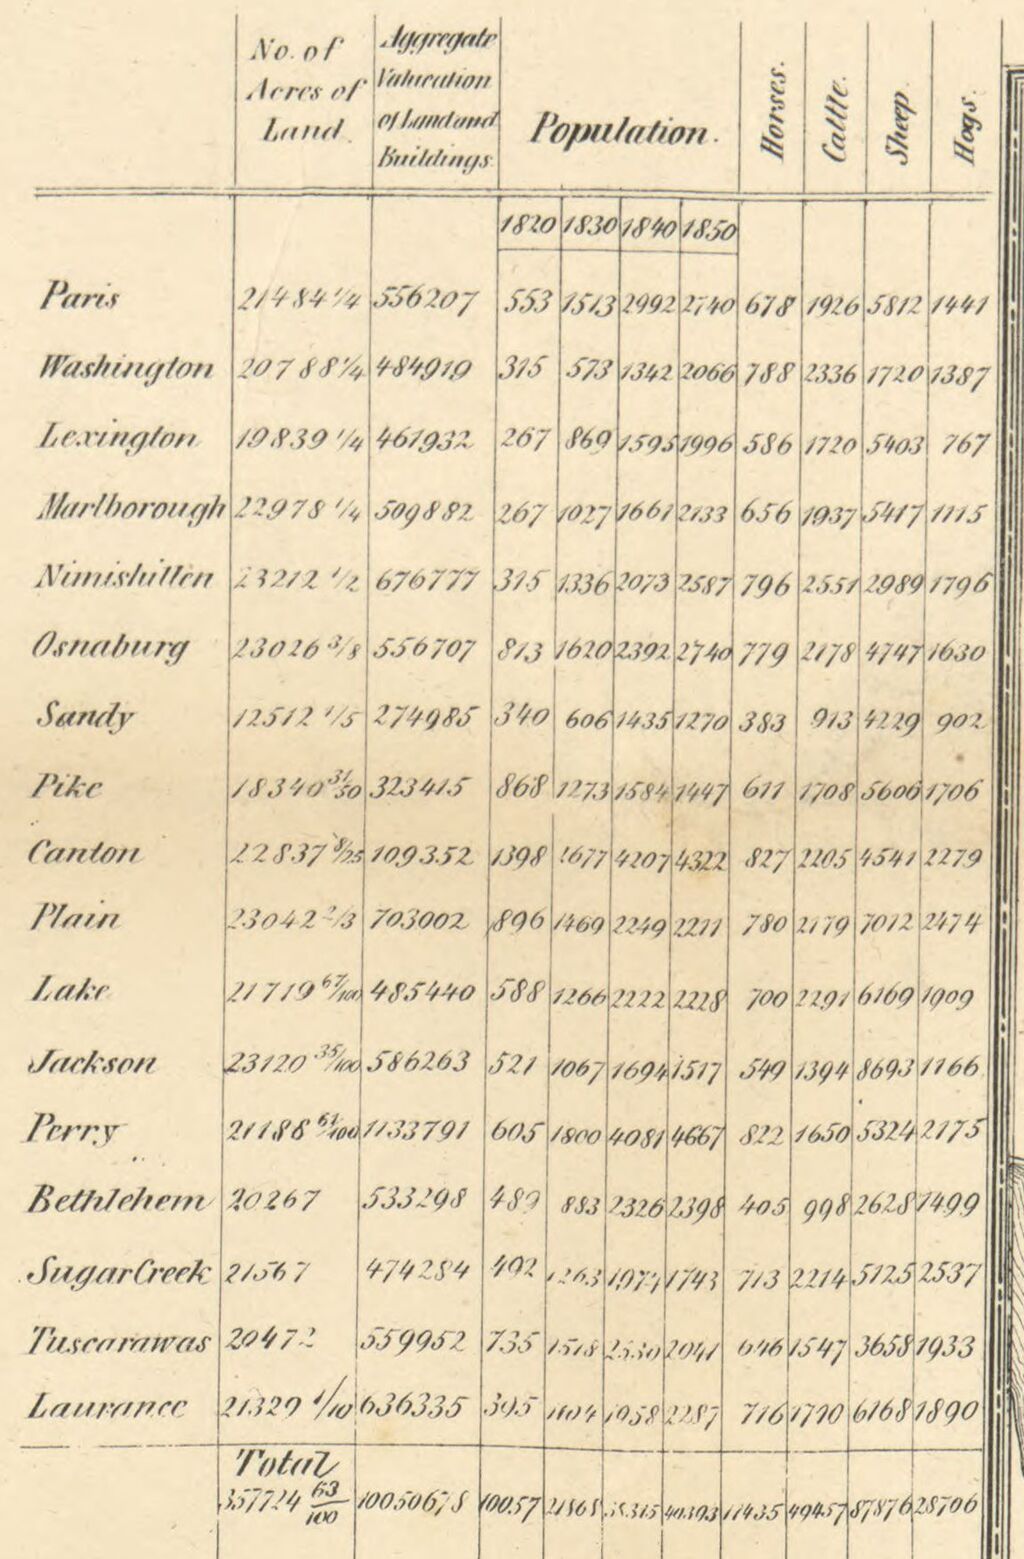 No. of Acres of Land. Aggregate Valuation of Land and Buildings. Population. Horses. Cattle. Sheep. Hogs.
1820 1830 1840 1850
Paris 21484 1/4 556207 553 1513 2992 2740 678 1926 5812 1441
Washington 20788 1/4 484919 315 573 1342 2066 788 2336 1720 1387
Lexington 19839 1/4 461932 267 869 1595 1996 586 1720 5403 767
Marlborough 22978 1/4 509882 267 1027 1661 2133 656 1937 5417 1115
Nimishillen 23212 1/2 676777 315 1336 2073 2587 796 2551 2989 1796
Osnaburg 23026 3/8 556707 813 1620 2392 2740 779 2178 4747 1630
Sandy 12512 1/5 274985 340 606 1435 1270 383 913 4229 902
Pike 18340 31/50 323415 868 1273 1584 1447 611 1708 5606 1706
Canton 22837 8/25 109352 1398 1677 4207 4322 827 2205 4541 2279
Plain 23042 2/3 703002 896 1469 2249 2211 780 2179 7012 2474
Lake 21719 67/100 485440 588 1266 2222 2228 700 2291 6169 1909
Jackson 23120 35/100 586263 521 1067 1694 1517 549 1394 8693 1166
Perry 21188 61/100 1133791 605 1800 4081 4667 822 1650 5324 2175
Bethlehem 20267 533298 489 883 2326 2398 405 998 2628 1499
Sugar Creek 21567 474284 492 1263 1974 1743 713 2214 5125 2537
Tuscarawas 20472 559952 735 1518 2041 646 1547 3658 1933
Laurance 21329 1/10 636335 395 1958 2287 716 1790 6168 1890
Total
357724 63/100 10050678 10057 21868 40393 11435 49457 87876 28706